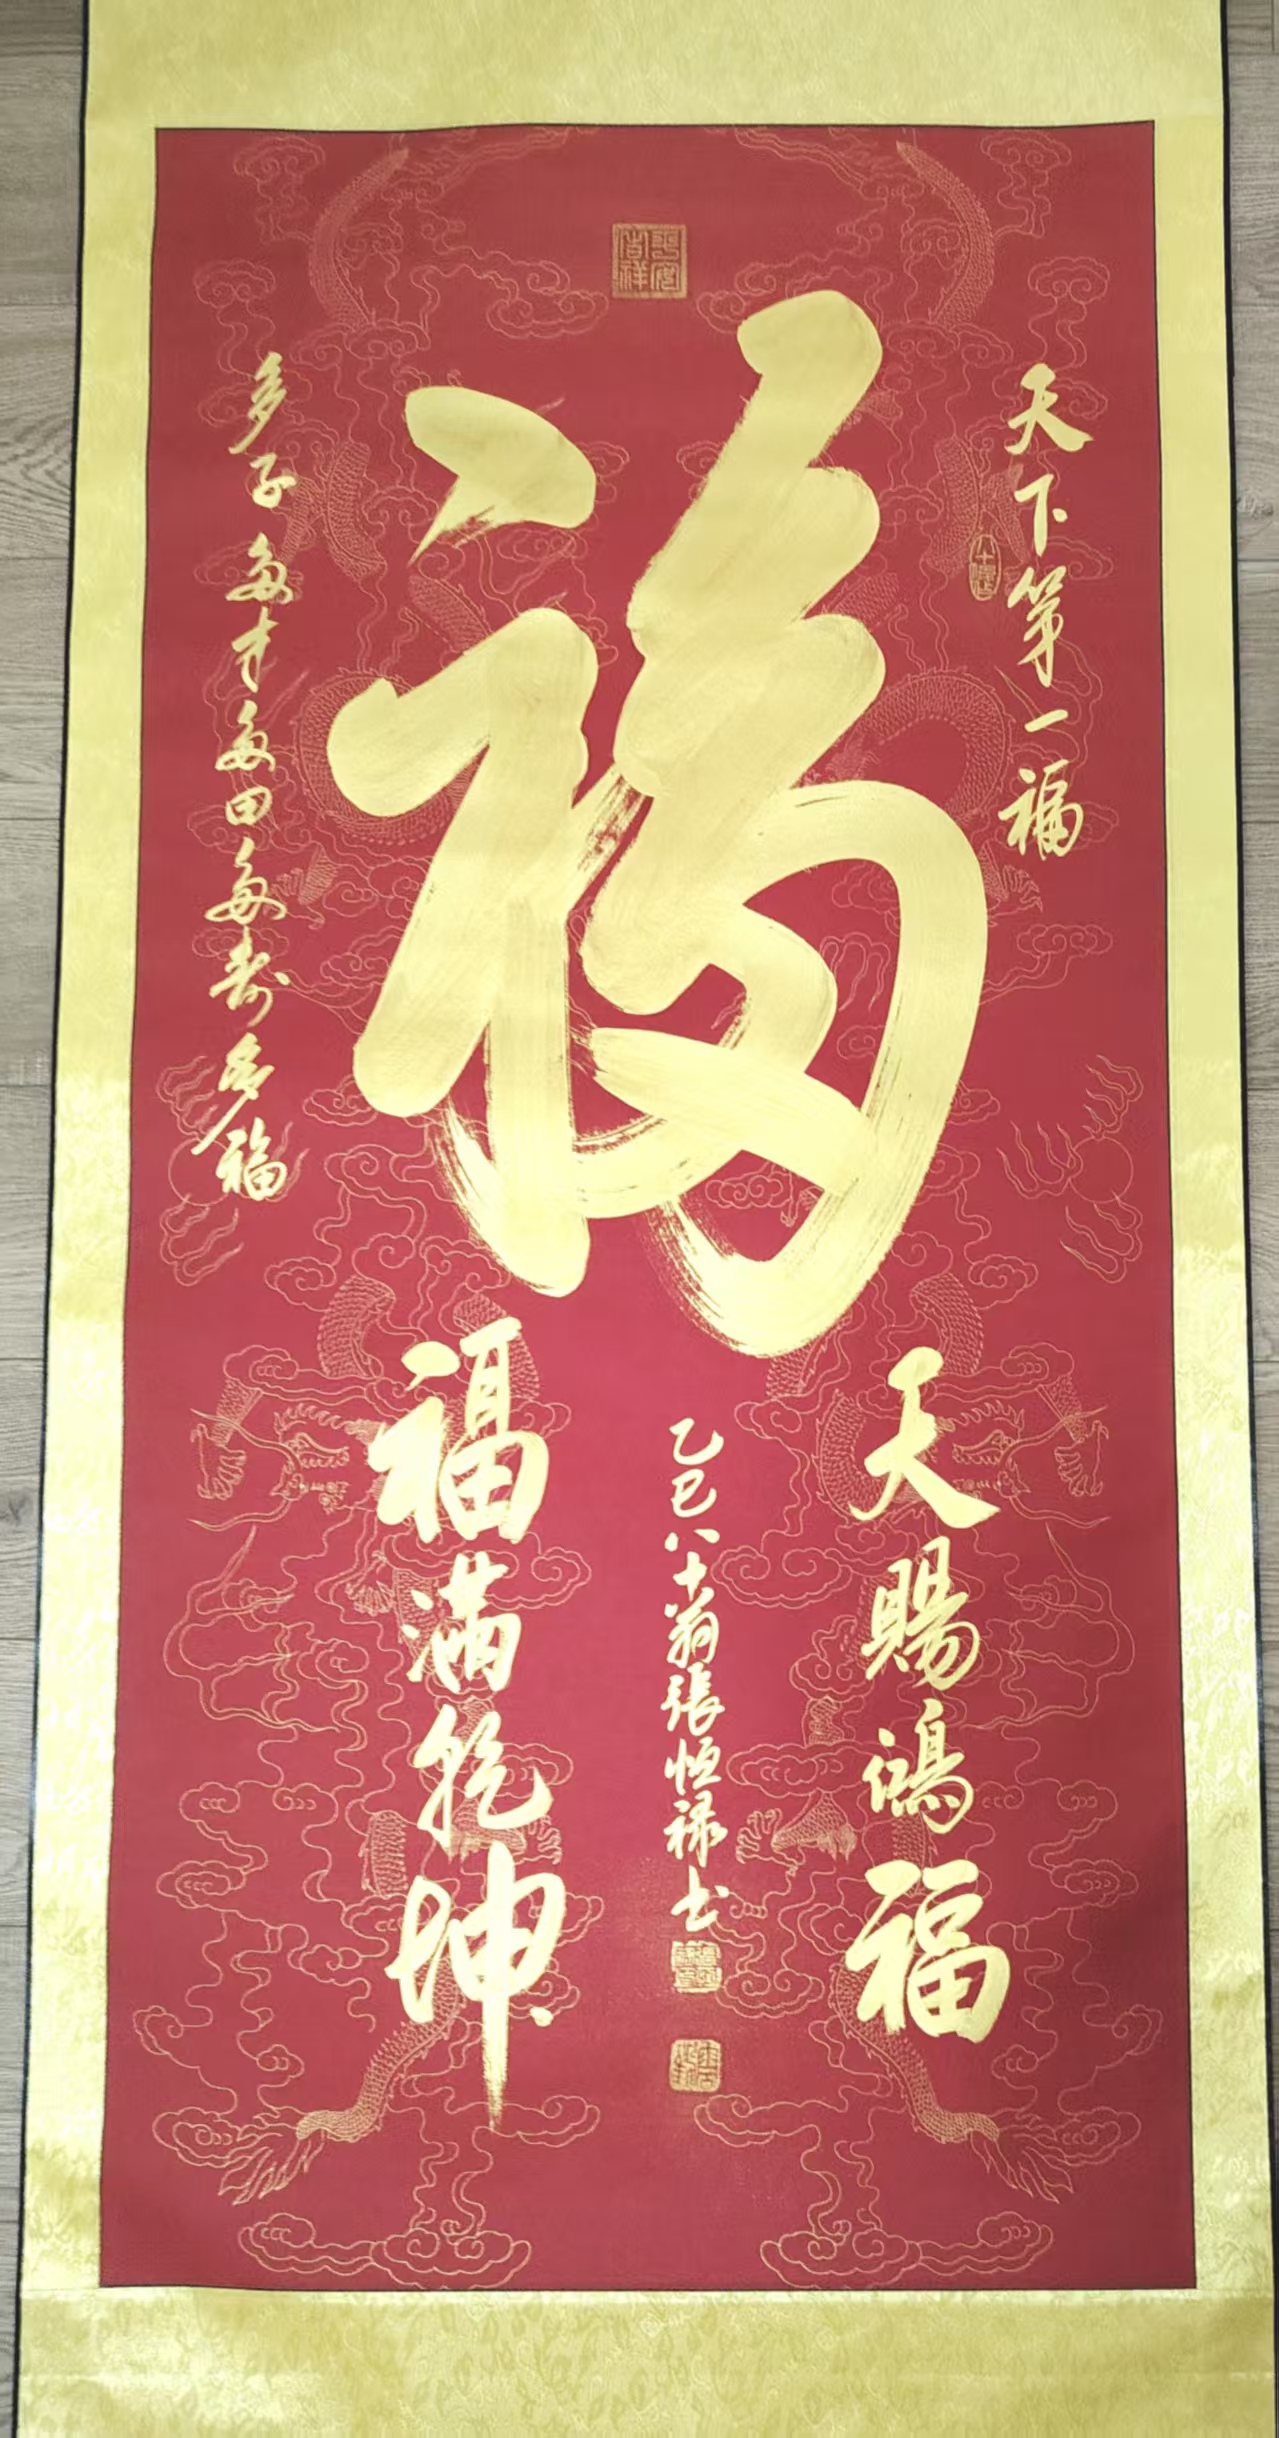 天下第一福
福
多子多才多田多寿多福
天賜鴻福
乙巳八十翁張恒禄书
福满乾坤